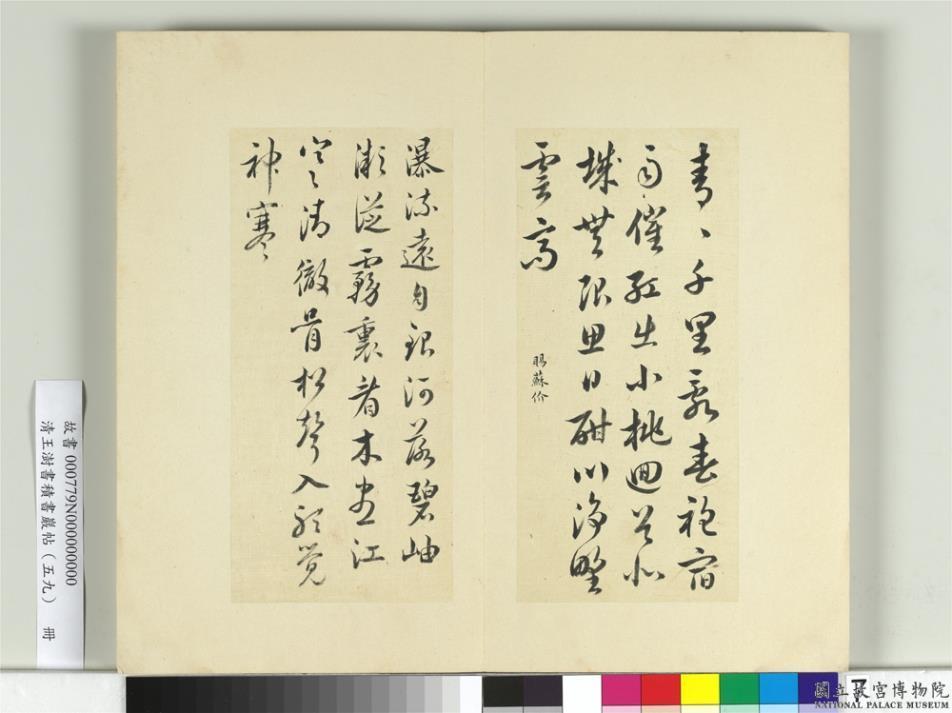 青、千里亂春袍宿
雨催紅出小桃迴首北
城無限思日酣川淨野
雲高
蘇
瀑流遠自銀河落碧岫
漸從霧裏看木盡江
空清徹骨松聲入聽覺
神寒
故書 000779N000000000
清王澍書積書巖帖（五九） 冊
7
國立故宮博物院
NATIONAL PALACE MUSEUM